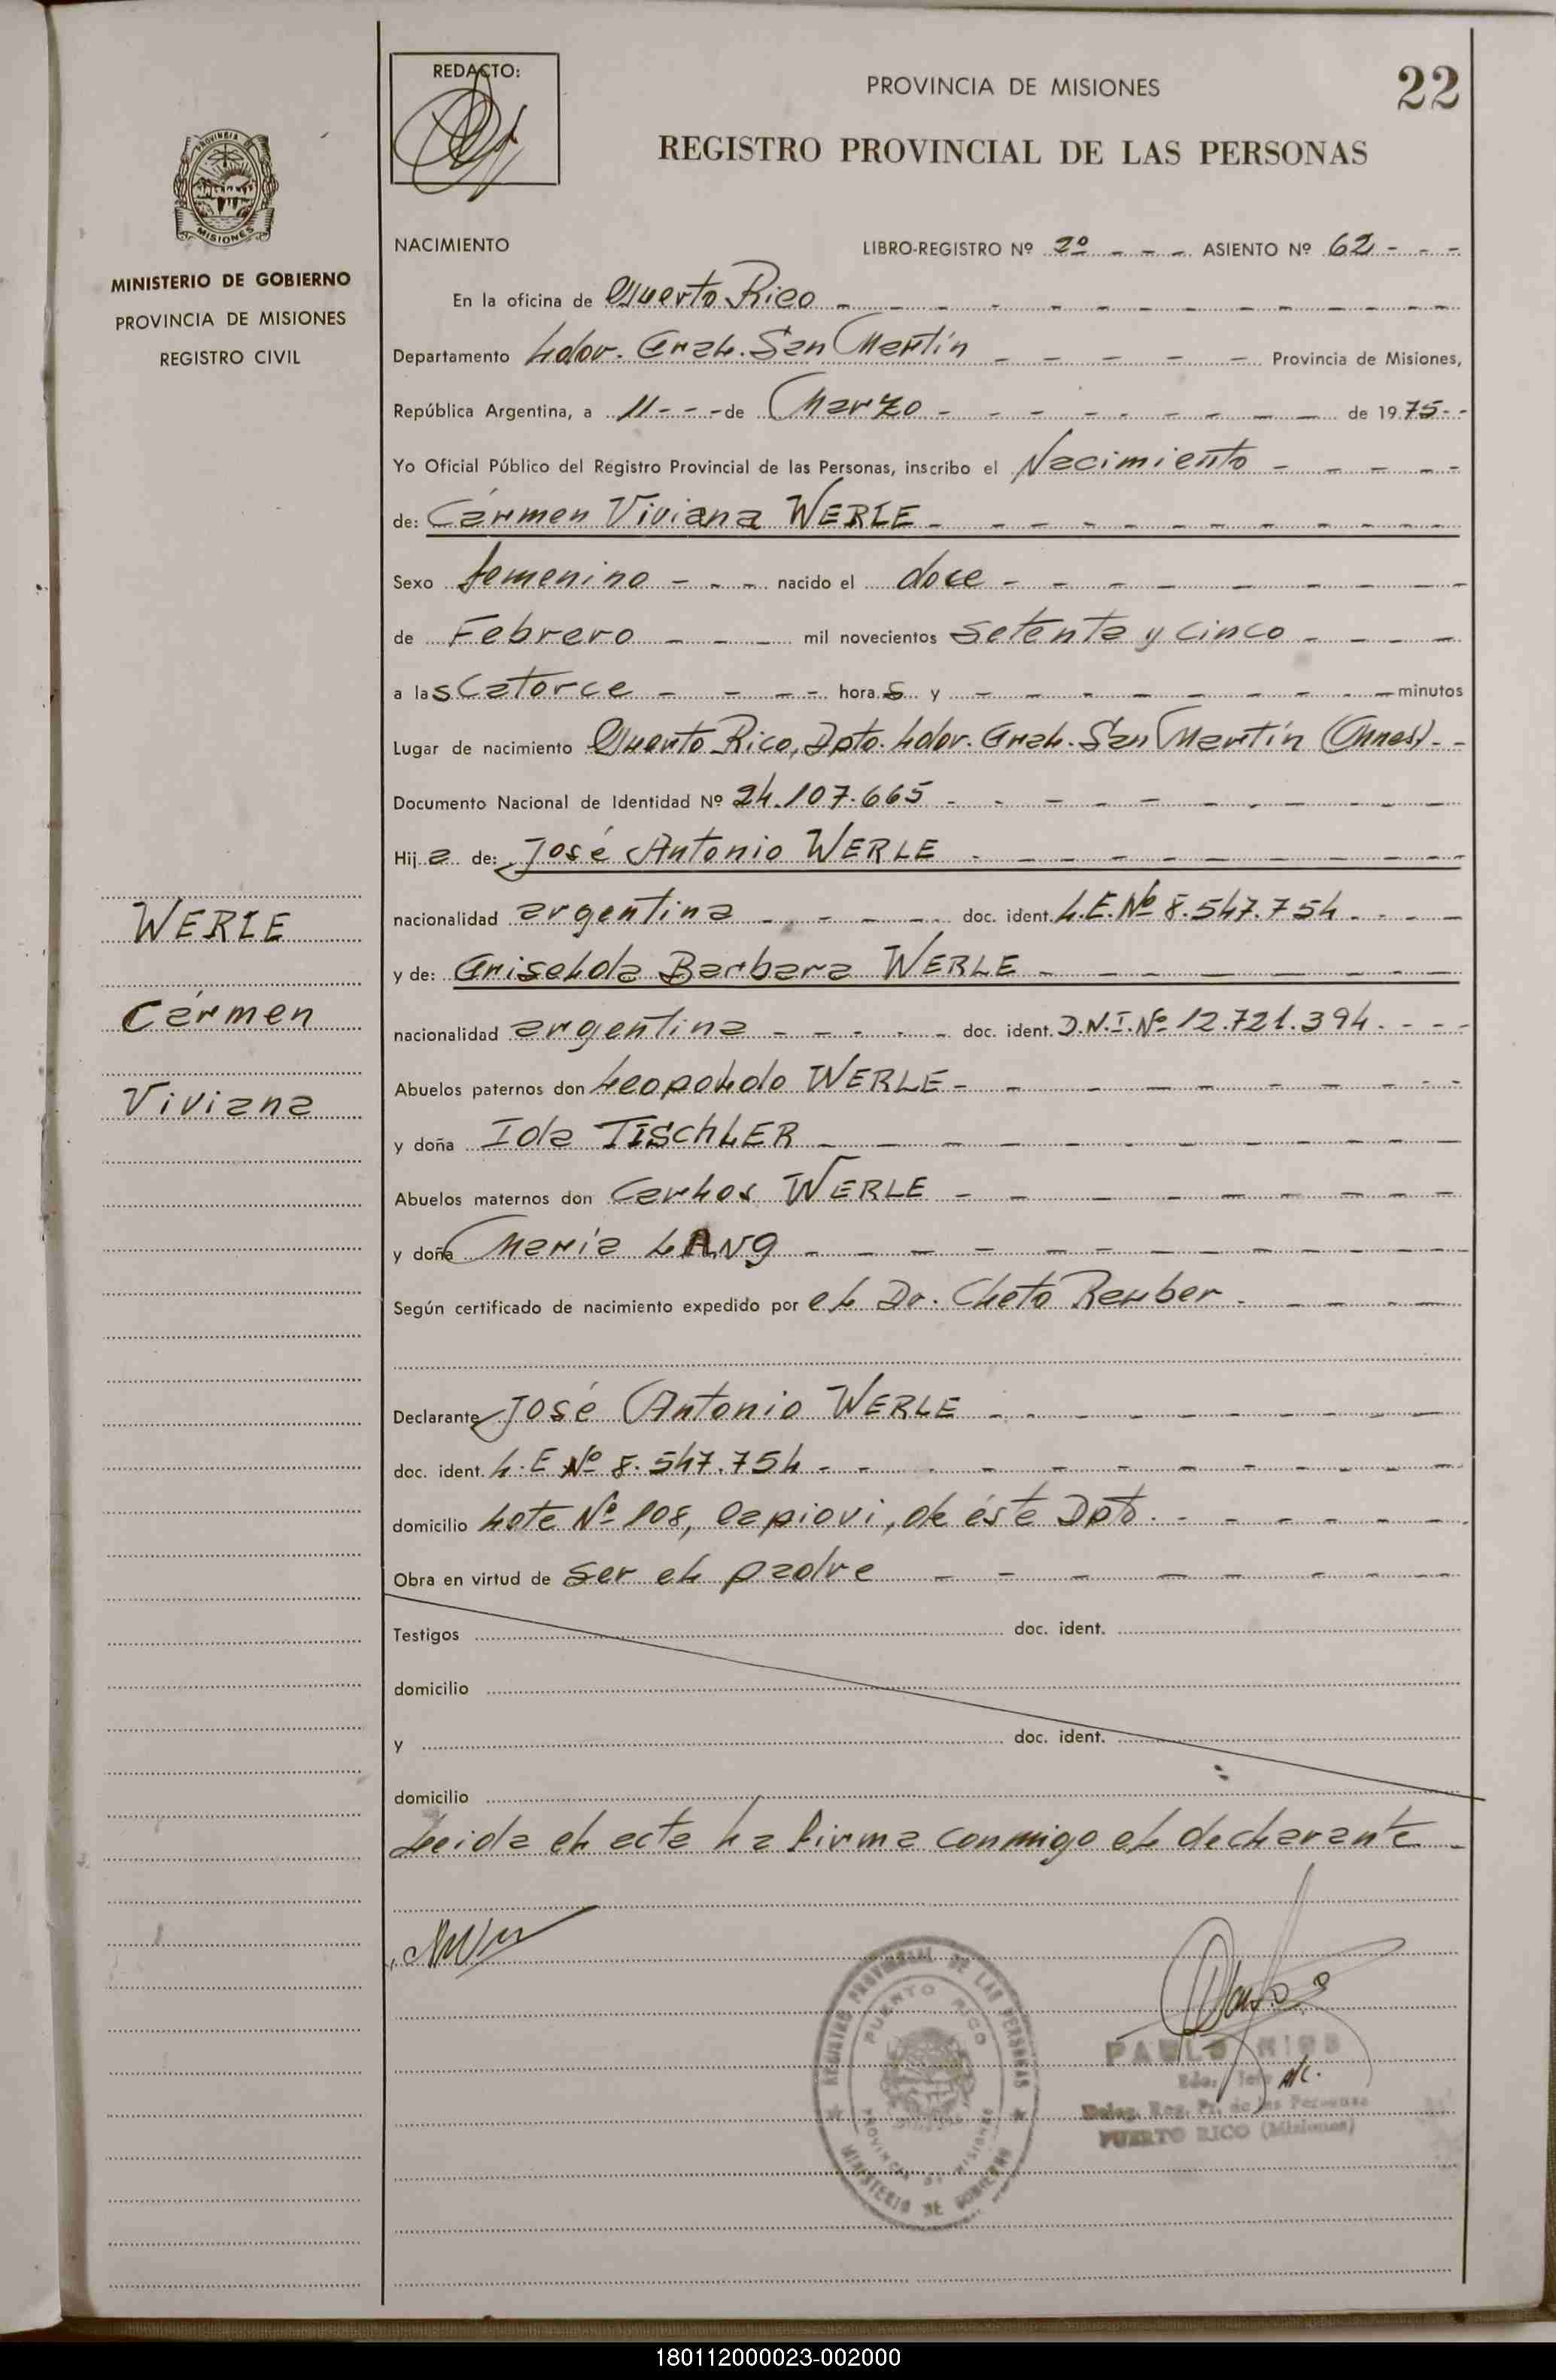 REDACTO:
PROVINCIA DE MISIONES
22
REGISTRO PROVINCIAL DE LAS PERSONAS
PROVINCIA DE
MISIONES
MINISTERIO DE GOBIERNO
PROVINCIA DE MISIONES
REGISTRO CIVIL
NACIMIENTO LIBRO-REGISTRO Nº 2º - - - ASIENTO Nº 62 - - -
En la oficina de Puerto Rico
Departamento Ldor. Gral. San Martín Provincia de Misiones,
República Argentina, a 11 - - - de Marzo de 1975 - -
Yo Oficial Público del Registro Provincial de las Personas, inscribo el Nacimiento
de: Cármen Viviana WERLE
Sexo femenino nacido el doce
de Febrero mil novecientos setenta y cinco
a las catorce horas y minutos
Lugar de nacimiento Puerto Rico, Dpto. Ldor. Gral. San Martín (Mnes).
Documento Nacional de Identidad Nº 24.107.665
Hija de: José Antonio WERLE
nacionalidad argentina doc. ident. L.E.Nº 8.547.754
y de: Griselda Barbara WERLE
nacionalidad argentina doc. ident. D.N.I.Nº 12.721.394
Abuelos paternos don Leopoldo WERLE
y doña Ida TISCHLER
Abuelos maternos don Carlos WERLE
y doña María LANG
Según certificado de nacimiento expedido por el Dr. Cleto Rauber
Declarante José Antonio WERLE
doc. ident. L.E Nº 8.547.754
domicilio Lote Nº 108, Capiovi, de éste Dpto.
Obra en virtud de ser el padre
Testigos doc. ident.
domicilio
y doc. ident.
domicilio
Leida el acta la firma conmigo el declarante
WERLE
Cármen
Viviana
REGISTRO PROVINCIAL DE LAS PERSONAS
PUERTO RICO
PROVINCIA DE MISIONES
MINISTERIO DE GOBIERNO
PABLO RIOS
a/c.
Deleg. Reg. Pr. de las Personas
PUERTO RICO (Misiones)
180112000023-002000